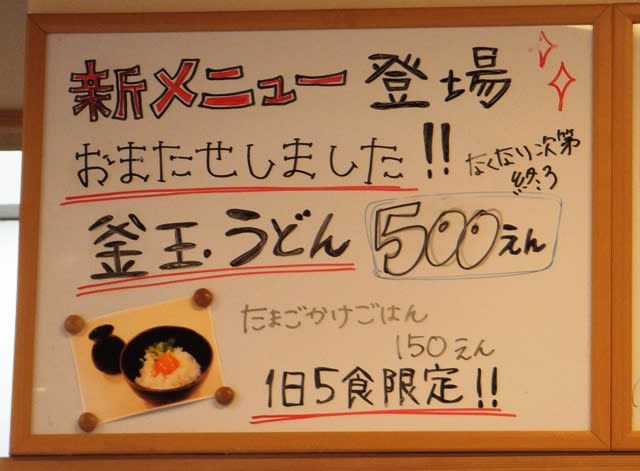 新メニュー登場
おまたせしました!!
なくなり次第
終ろ
釜玉.うどん 500えん
たまごかけごはん
150えん
1日5食限定!!